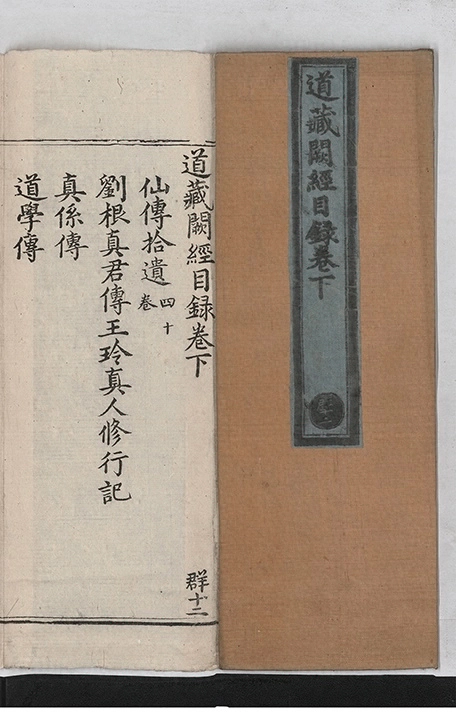 道藏闕經目録卷下
道藏闕經目録卷下
群十二
仙傳拾遺四十卷
劉根真君傳王玲真人修行記
真係傳
道學傳